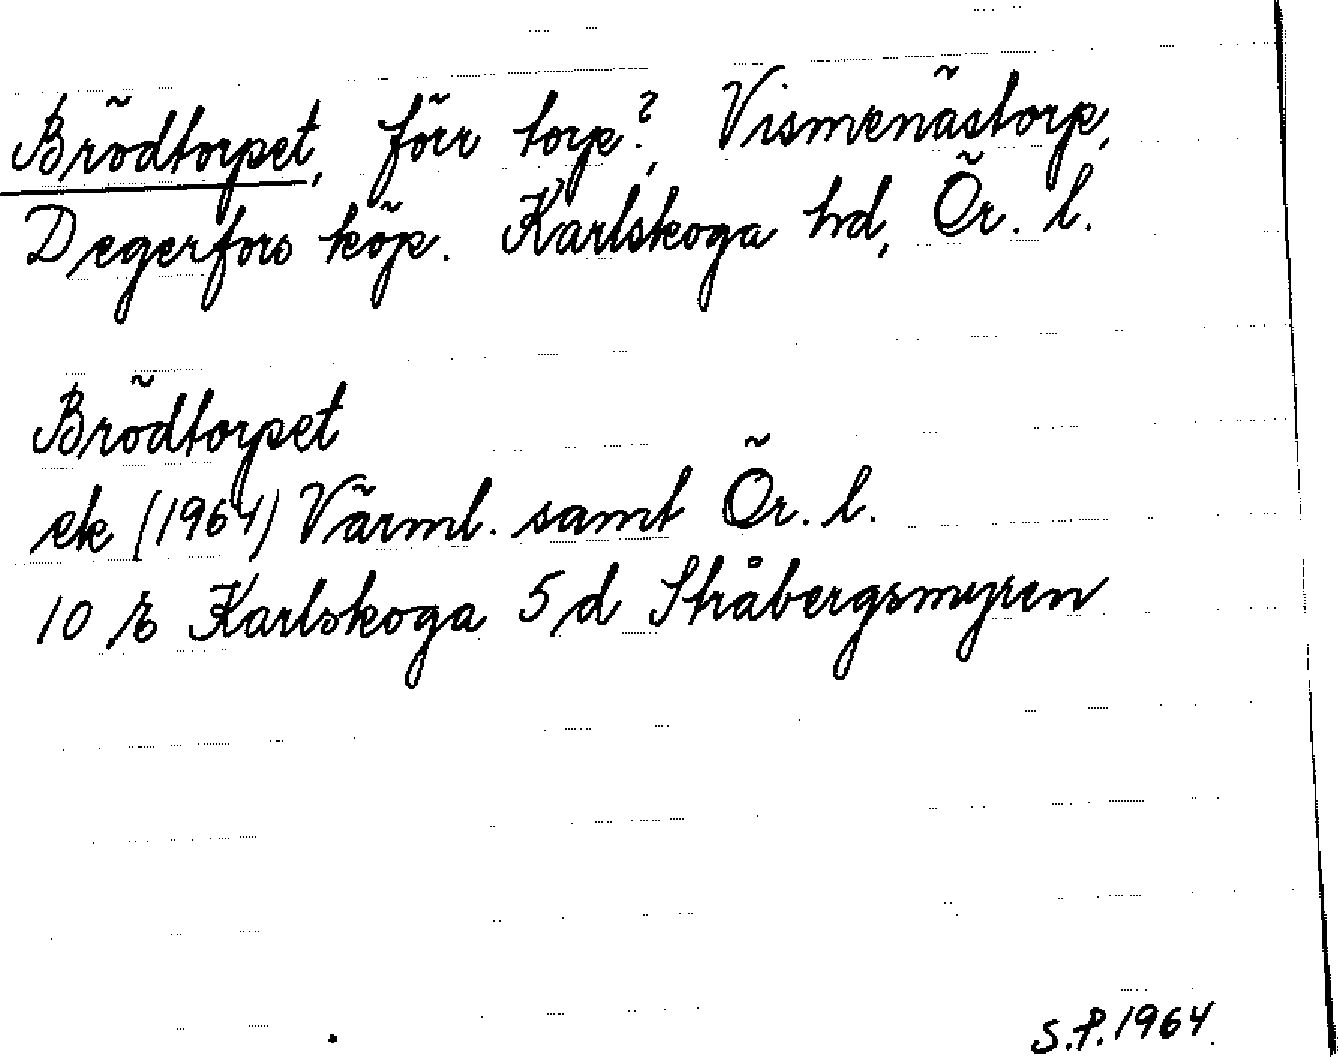 Brödtorpet, förr torp?, Vismenästorp,
Degerfors köp. Karlskoga hd, Ör. l.
Brödtorpet
ek (1964) Värml. samt Ör. l.
10 E Karlskoga 5 d Stråbergsmyren
S.P. 1964